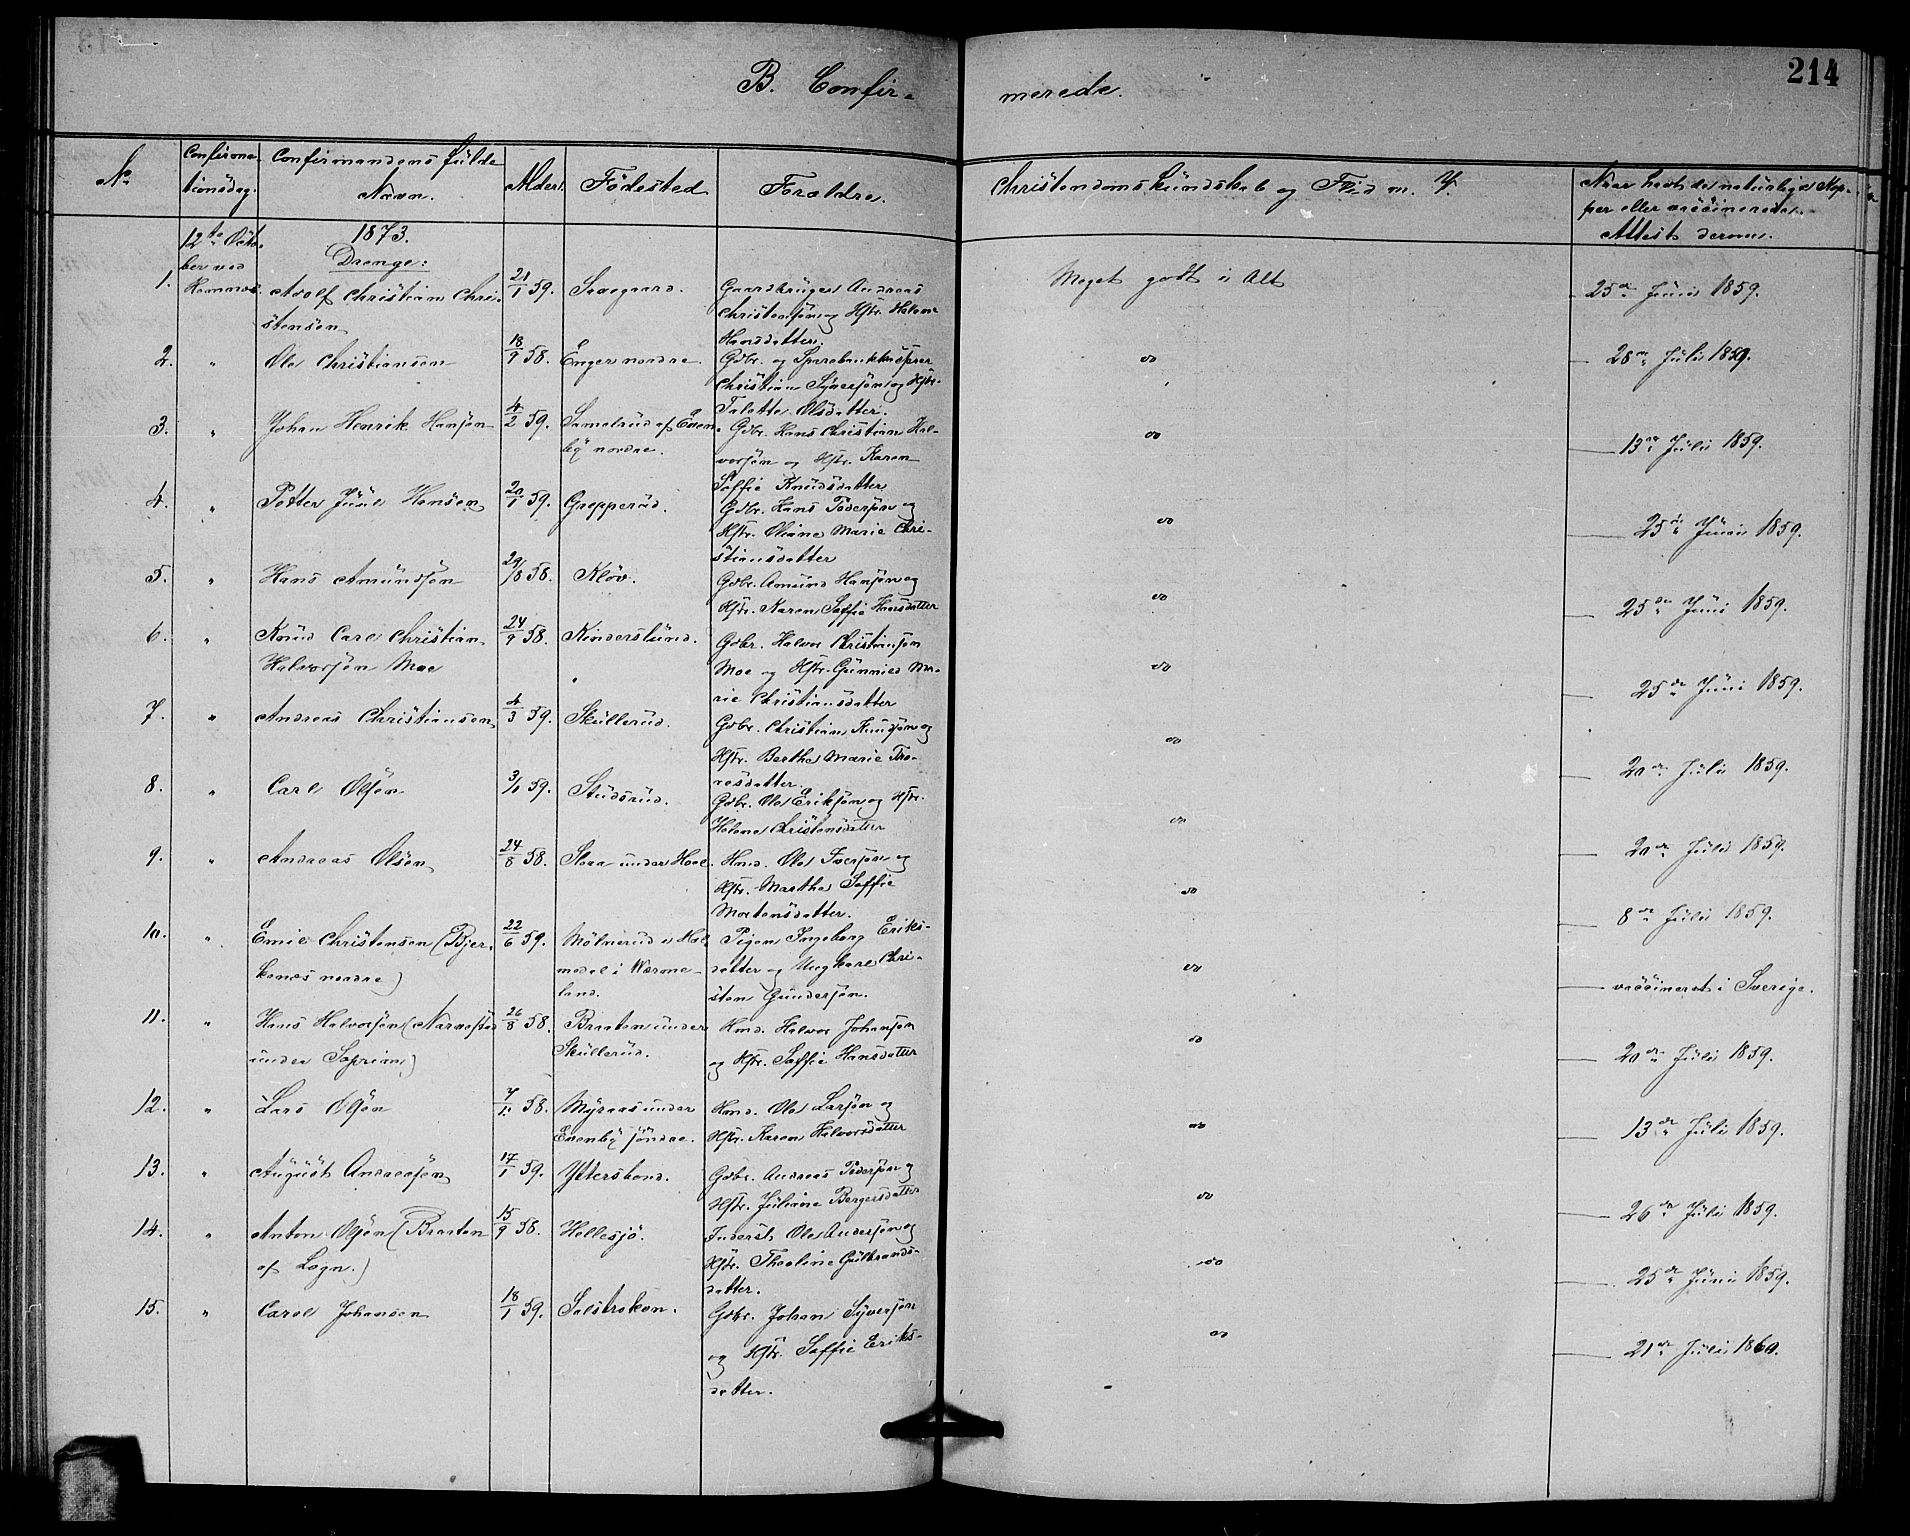 214
B. Confir-
merede.
No
Confirma-
tionsdag.
Confirmandens fulde
Navn.
Alder.
Födested
Forældre.
Christendomskundskab og Flid m. V.
Naar havt de naturlige Kop-
per eller vaccinerede.
Attest derom.
12te Octo-
ber ved
1873.
Drenge:
1.
Adolf Christian Chri-
stensen
21/1 59.
Gaardbruger Andreas
Christensen og Hstr. Helene
Hansdatter.
Meget godt i Alt
25de Juni 1859.
2. "
Ole Christiansen
18/9 58.
Enger nordre.
Gdbr. og Sparebankkasserer
Christian Syversøn og Hstr.
Talette Olsdatter.
do
28de Juli 1859.
3. "
Johan Henrik Hansøn
4/2 59.
Samelrud af Even-
by nordre.
Gdbr. Hans Christian Hal-
vorsøn og Hstr. Karen
Soffie Knudsdatter
do
13de Juli 1859.
4. "
Petter Juul Hansen
20/1 59.
Grepperud.
Gdbr. Hans Pedersøn og
Hstr. Oliane Marie Chri-
stiansdatter
do
25de Juni 1859.
5. "
Hans Amundsøn
29/8 58.
Kløv.
Gdbr. Amund Hansøn og
Hstr. Karen Soffie Hansdatter
do
25de Juni 1859.
6. "
Knud Carl Christian
Halvorsøn Moe
24/9 58.
Kinderslund.
Gdbr. Halvor Christiansøn
Moe og Hstr. Gunnild Ma-
rie Christiansdatter
do
25de Juni 1859.
7. "
Andreas Christiansen
4/3 59.
Skullerud.
Gdbr. Christian Knudsøn og
Hstr. Berthe Marie Tro-
nesdatter.
do
20de Juli 1859.
8. "
Carl Olsøn
3/1 59.
Studsrud.
Gdbr. Ole Eriksøn og Hstr.
Helene Christensdatter
do
20de Juli 1859.
9. "
Andreas Olsen
24/8 58.
Hmd. Ole Iversøn og
Hstr. Marthe Soffie
Mortensdatter.
do
8de Juli 1859.
10. "
Emil Christensen (Bjer-
kenæs nordre)
22/6 59.
Mölnerud i Hol-
medal i Værme-
land.
Pigen Ingeborg Eriks-
datter og Ungkarl Chri-
sten Gundersøn.
do
vaccineret i Sverige.
11. "
Hans Halvorsøn (Narvestad
under Soprim)
26/8 58.
Braaten under
Skullerud.
Hmd. Halvor Johansøn
og Hstr. Soffie Hansdatter
do
20de Juli 1859.
12. "
Lars Olsøn
58.
Myraas under
Evenby søndre.
Hmd. Ole Larsøn og
Hstr. Karen Halvorsdatter
do
13de Juli 1859.
13. "
August Andreasøn
17/1 59.
Ytterstond.
Gdbr. Andreas Pedersøn og
Hstr. Juliane Bergersdatter
do
26de Juli 1859.
14. "
Anton Olsøn (Braaten
af Logn.)
15/9 58.
Hellesjö.
Inderst Ole Andersøn og
Hstr. Theoline Gulbrands-
datter.
do
25de Juni 1859.
15. "
Carel Johansen
18/1 59.
Selstrøken.
Gdbr. Johan Syversøn
og Hstr. Soffie Eriks-
datter.
do
21de Juli 1860.